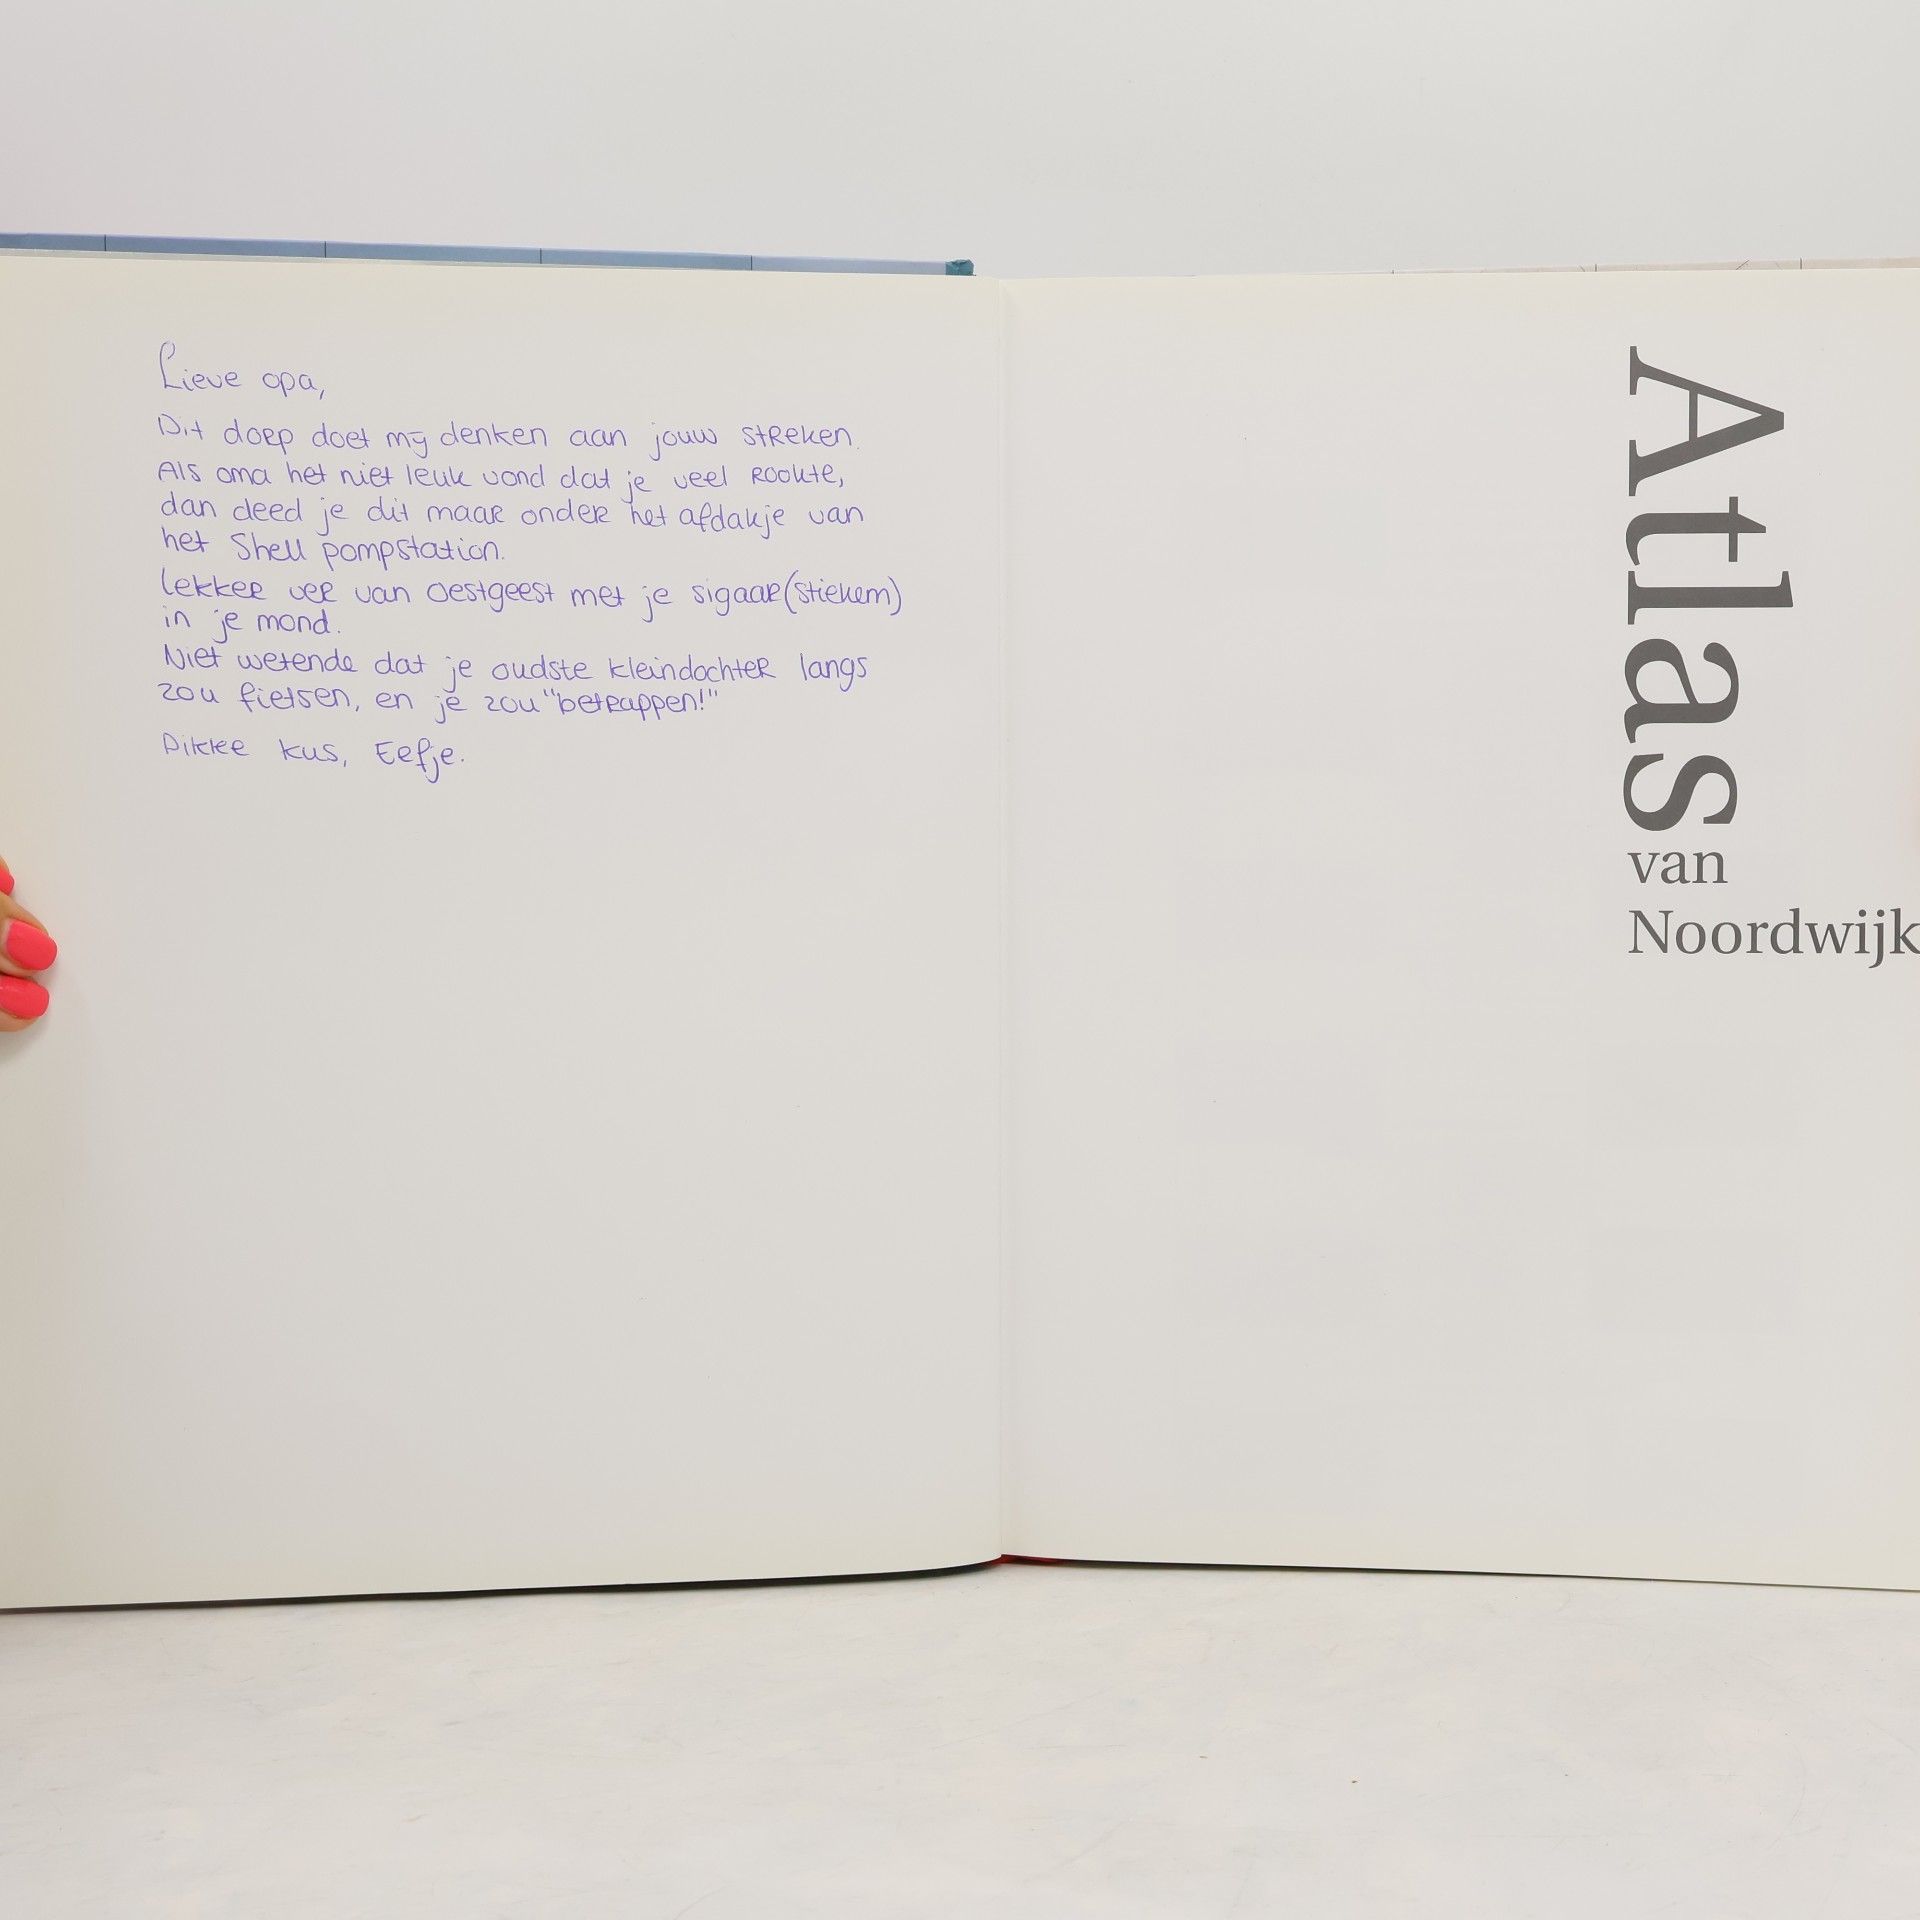 Lieve opa,
Dit dorp doet mij denken aan jouw streken.
Als oma het niet leuk vond dat je veel rookte,
dan deed je dit maar onder het afdakje van
het Shell pompstation.
Lekker ver van Oestgeest met je sigaar(stiekem)
in je mond.
Niet wetende dat je oudste kleindochter langs
zou fietsen, en je zou "betrappen!"
Dikke kus, Eefje.
Atlas
van
Noordwijk